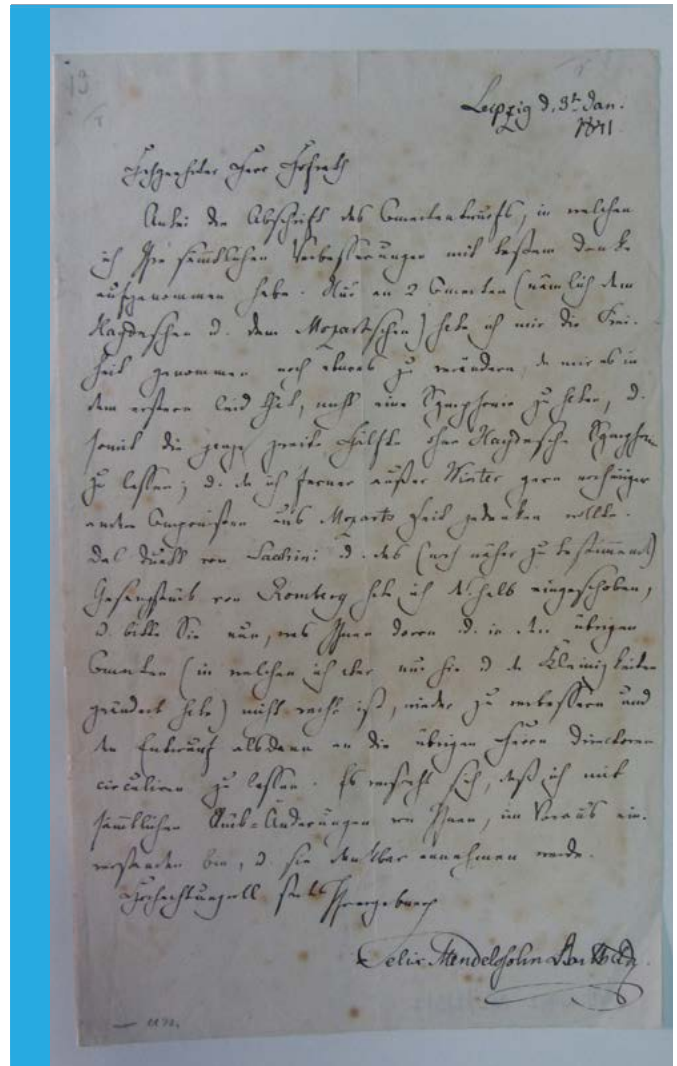 19
Leipzig d. 3t Jan.
1841
Hochgeehrter Herr Hofrath
Anbei die Abschrift des Concertentwurfs, in welchen
ich Ihre sämtlichen Verbesserungen mit bestem Danke
aufgenommen habe. Nur an 2 Concerten (nämlich dem
Haydnschen u. dem Mozartschen) habe ich mir die Frei-
heit genommen noch etwas zu verändern, da mir es in
dem erstern leid that, nicht eine Symphonie zu haben, u.
somit die ganze zweite Hälfte ohne Haydnsche Symphonie
zu lassen; u. da ich ferner außer Winter gern noch einiger
andern Componisten aus Mozarts Zeit gedenken wollte.
Das Duett von Sacchini u. das (noch näher zu bestimmende)
Gesangstück von Romberg habe ich deshalb eingeschoben,
u. bitte Sie nun, was Ihnen daran u. in den übrigen
Concerten (in welchen ich aber nur hie u. da Kleinigkeiten
geändert habe) nicht recht ist, wieder zu verbessern und
den Entwurf alsdann an die übrigen Herrn Directoren
circuliren zu lassen. Es versteht sich, daß ich mit
sämmtlichen Änderungen von Ihnen, im Voraus ein-
verstanden bin, u. sie dankbar annehmen werde.
Hochachtungsvoll stets Ihr ergebner
Felix Mendelssohn Bartholdy